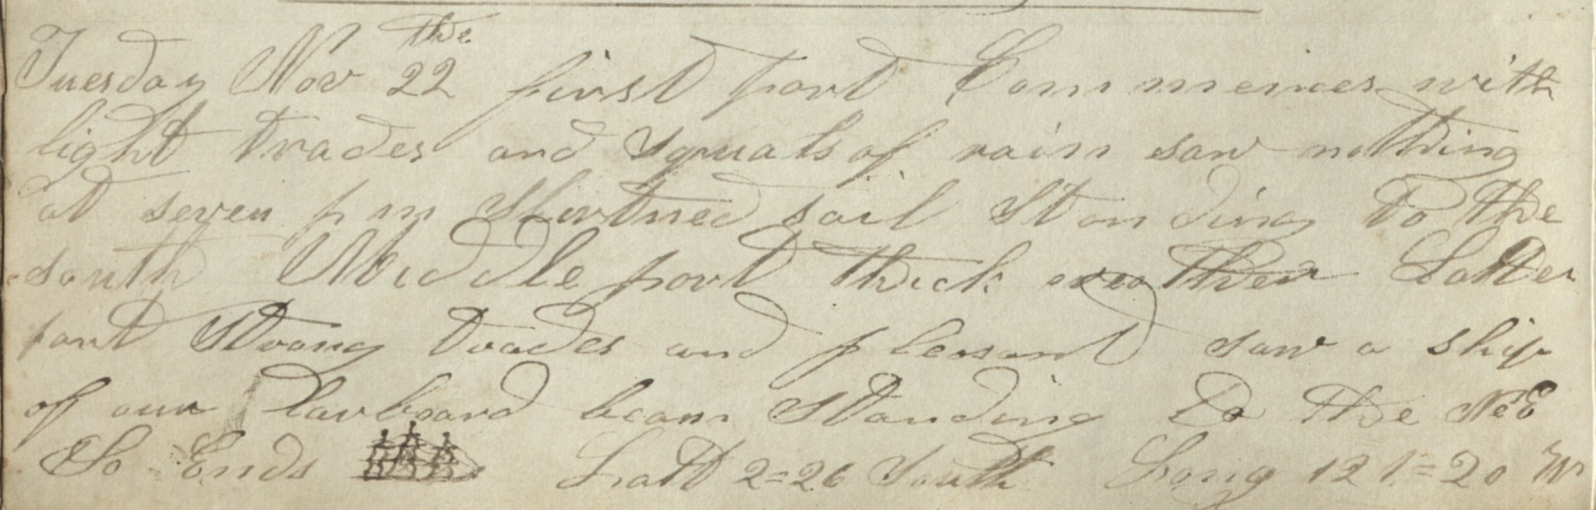 Tuesday Nov 22 the first part Commences with
light trades and squals of rain saw nothing
at seven pm Shortned sail Standing to the
south Middle part thick weather Latter
part Strong trades and pleasant saw a ship
of our Larboard beam Standing to the NE
So Ends Latt 2=26 South Long 121=20 W